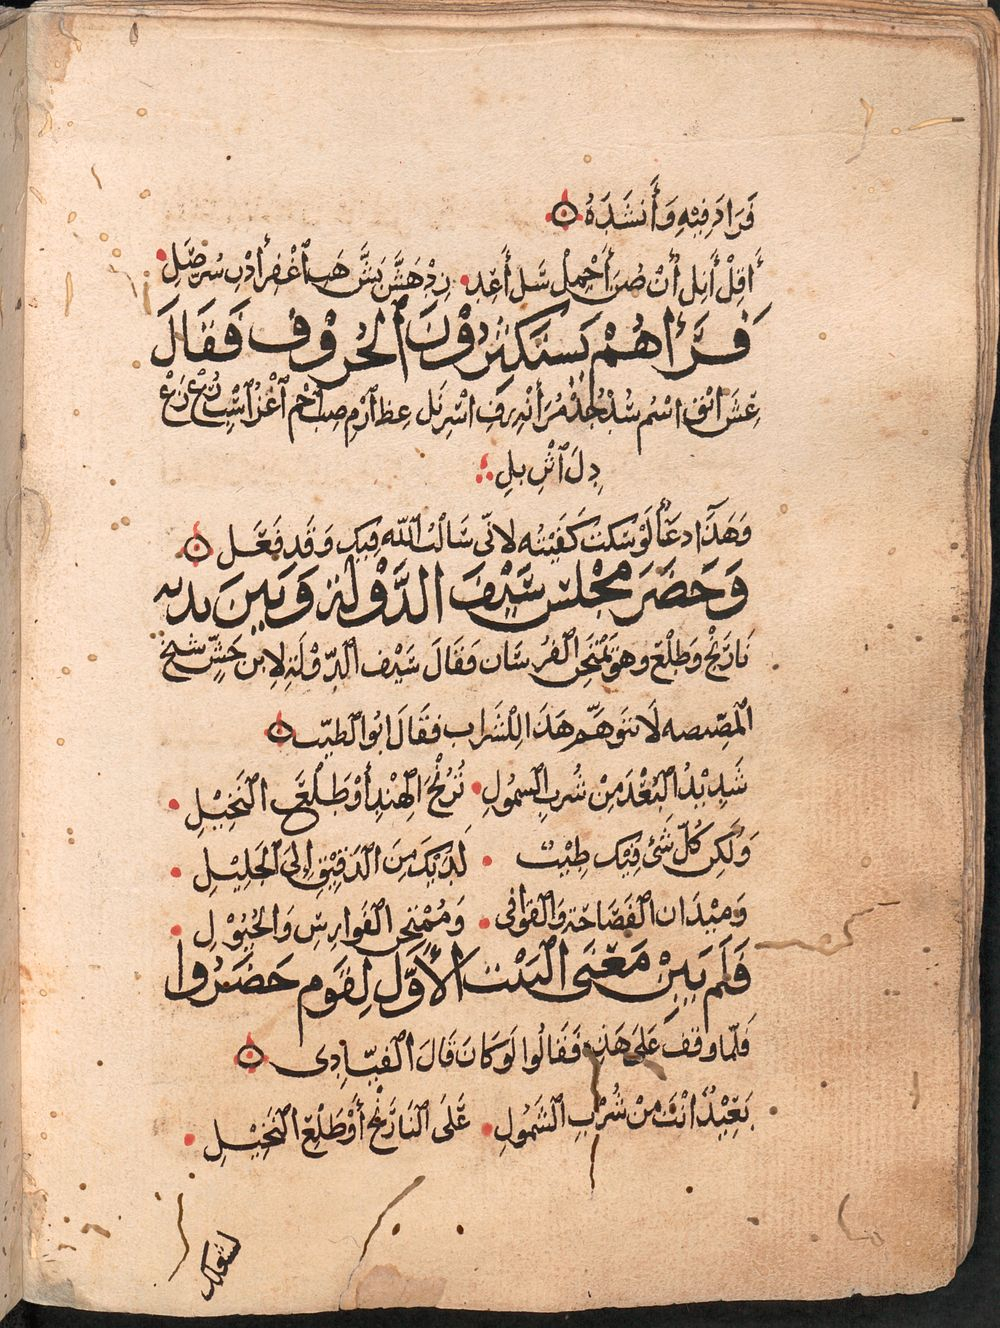 فَزَادَ فِيْهِ وَأَنْشَدَهُ
أَقِلْ أَنِلْ أُنْ صُنِ أَحْمِلْ سَلِّ أَعِدْ زِدْ هَشَّ بَشَّ هَبْ اغْفِرْ أَدْنِ سُرَّ صِلِ
فَرَأٰهُمْ يَسْتَكْثِرُوْنَ الْحُرُوْفَ فَقَالَ
عِشِ ابْقَ اسْمُ سُدْ جُدْ مُرِ انْهَ رِفِ اسْرِ نَلْ غِظِ ارْمِ صِبِ احْمِ اغْزُ اسْبِ رُعْ زَعْ
دِ لِ اثْنِ بِلِ
وَهَذَا دُعَاٌ لَوْ سَكَتُّ كُفِيْتَهُ لِانّى سَالْتُ اللّه فِيْكَ وَقَد فَعَل
وَحَضَرَ مَجْلِسَ سَيْفَ الدَّوْلَةِ وَبَيْنَ يَدَيْه
نَارَنْجٌ وَطَلْعٌ وهو يَمْتَحِنُ الْفُرْسَان فَقَالَ سَيْف الدّوْلَةِ لِابن حَبَشٍ شيخ
الْمَصِّيصه لَا تتوهّم هَذَا لِلشّرَاب فقَالَ ابُوا لطَيّب
شَدِيْدُ الْبُعْدِ مِنْ شُربِ الشمُولِ تُرُنْجُ الْهِنْدِ أَوْ طَلْعُ النَّخِيْلِ
وَلٰكِنْ كُلّ شَئٍ فِيْكَ طِيْبٌ لَدَيْكَ مِنَ الدَقِيْقِ اِلَى الْجَلِيْلِ
وَمَيْدَانُ الْفَصَاحَةِ وَالْقَوَافى وَمُمْتَحَنُ الْفَوارِسِ وَالْخُيُوْلِ
فَلَم يَبِيْنْ مَعْنَى الْبَيْت الْأَوَّلِ لِقَوم حَضَرُوا
فَلَمّا وقف عَلَى هَذِهِ فَقَالُوا لَو كَانَ قَالَ الْعَبّادِى
بَعِيْدٌ انْتَ مِنْ شُرْبِ الشَمُولِ عَلَى النَارَنْجِ أَوْ طَلْعِ النَخِيْلِ